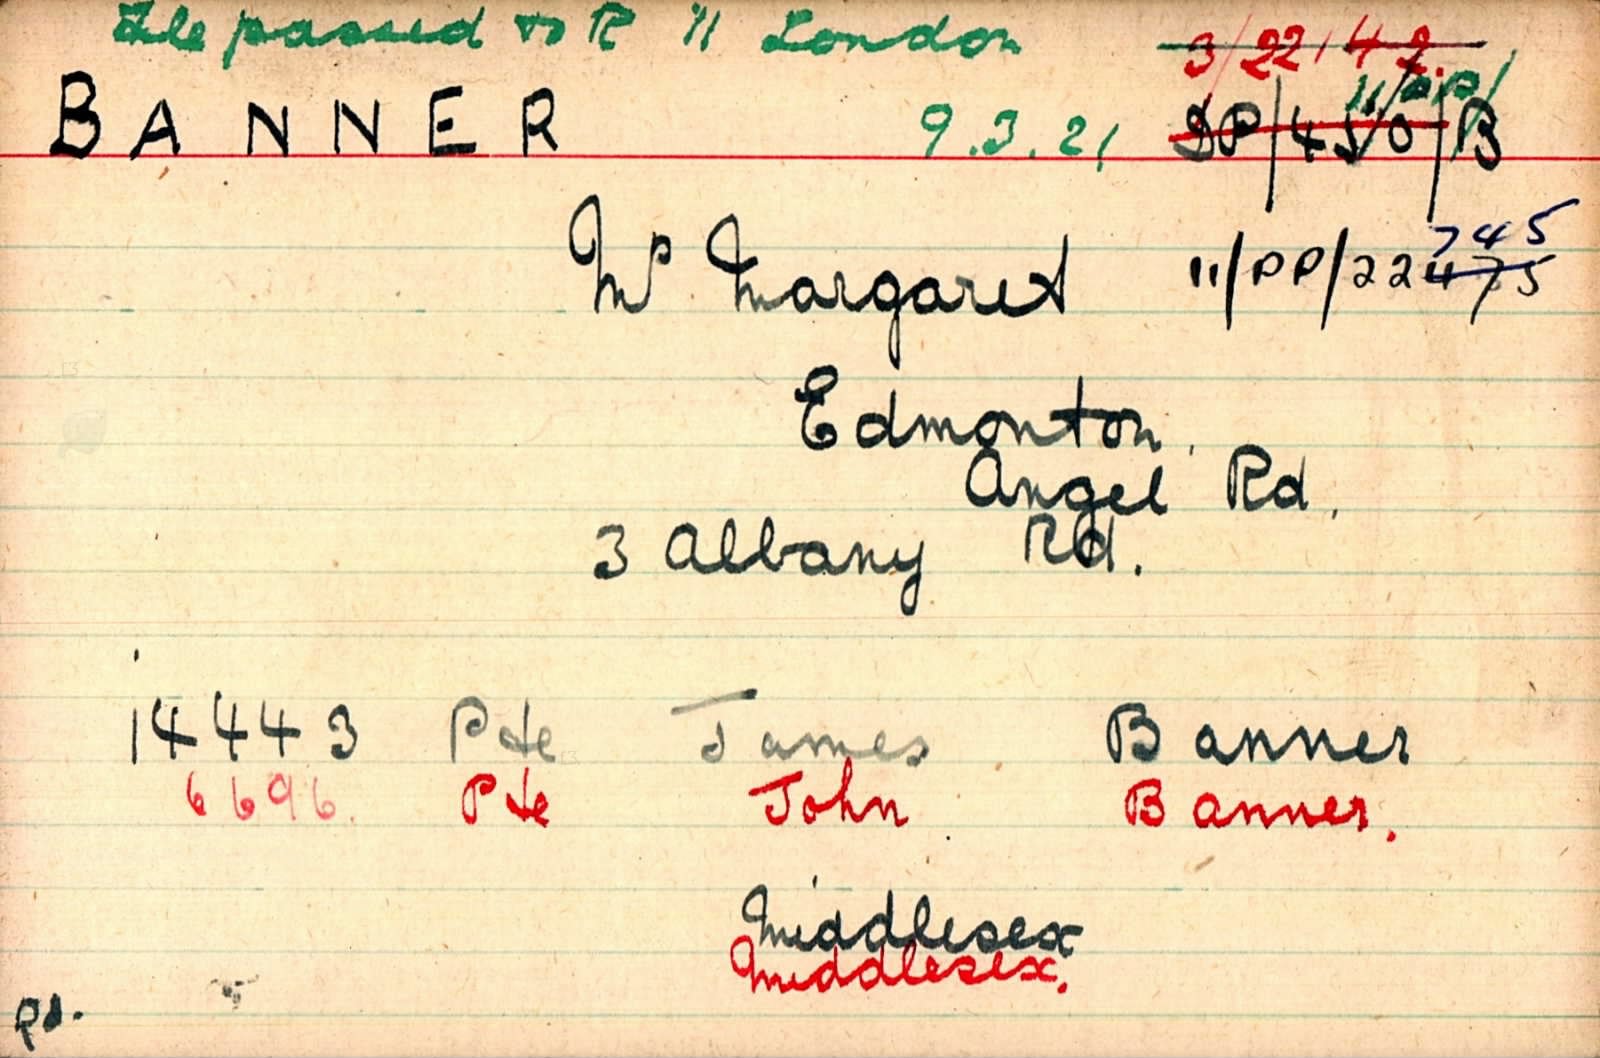 File passed to R 11 London
3/22142.
11/PP/
BANNER 9.3.21 SP/45/0/B
Mrs Margaret 11/PP/22475
745
Edmonton.
Angel Rd.
3 Albany Rd.
14443 Pte James Banner
6696. Pte John Banner.
Middlesex
Middlesex.